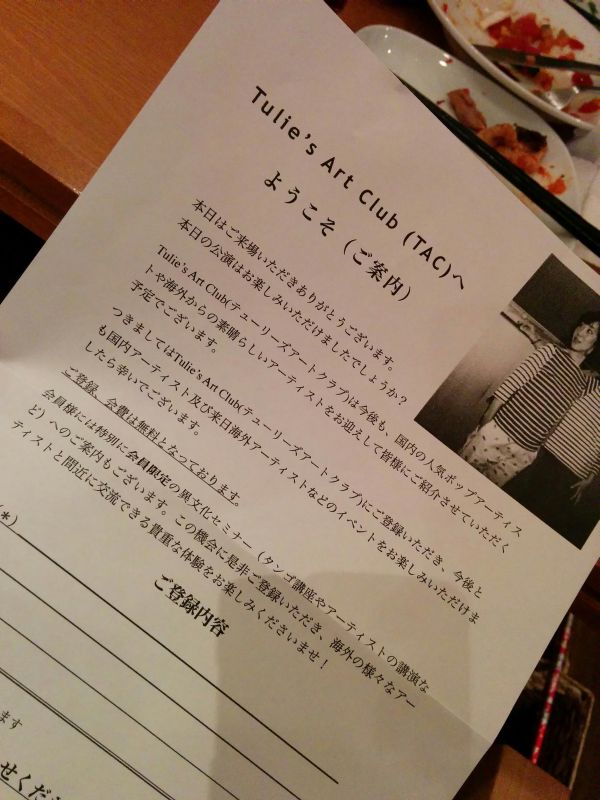 Tulie's Art Club (TAC)へ
ようこそ（ご案内）
本日はご来場いただきありがとうございます。
本日の公演はお楽しみいただけましたでしょうか？
Tulie's Art Club(テューリーズアートクラブ)は今後も、国内の人気ポップアーティス
トや海外からの素晴らしいアーティストをお迎えして皆様にご紹介させていただく
予定でございます。
つきましてはTulie's Art Club(テューリーズアートクラブ)にご登録いただき、今後と
も国内アーティスト及び来日海外アーティストなどのイベントをお楽しみいただけま
したら幸いでございます。
ご登録、会費は無料となっております。
会員様には特別に会員限定の異文化セミナー（タンゴ講座やアーティストの講演な
ど）へのご案内もございます。この機会に是非ご登録いただき、海外の様々なアー
ティストと間近に交流できる貴重な体験をお楽しみくださいませ！
ご登録内容
(*)
ます
せくだ